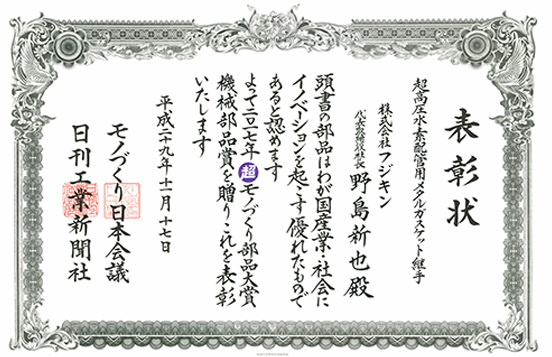 表彰状
超高圧水素配管用メタルガスケット継手
株式会社フジキン
代表取締役社長 野島新也殿
頭書の部品はわが国産業・社会に
イノベーションを起こす優れたもので
あると認めます
よって二〇一七年超モノづくり部品大賞
機械部品賞を贈りこれを表彰
いたします
平成二十九年十一月十七日
モノづくり日本会議
日刊工業新聞社